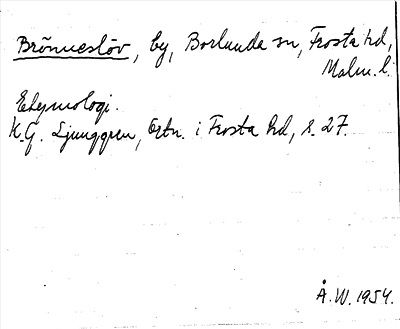 Brönneslöv, by, Borlunda sn, Frosta hd,
Malm. l.
Etymologi.
K.G. Ljunggren, Ortn. i Frosta hd, s. 27.
Å.W. 1954.